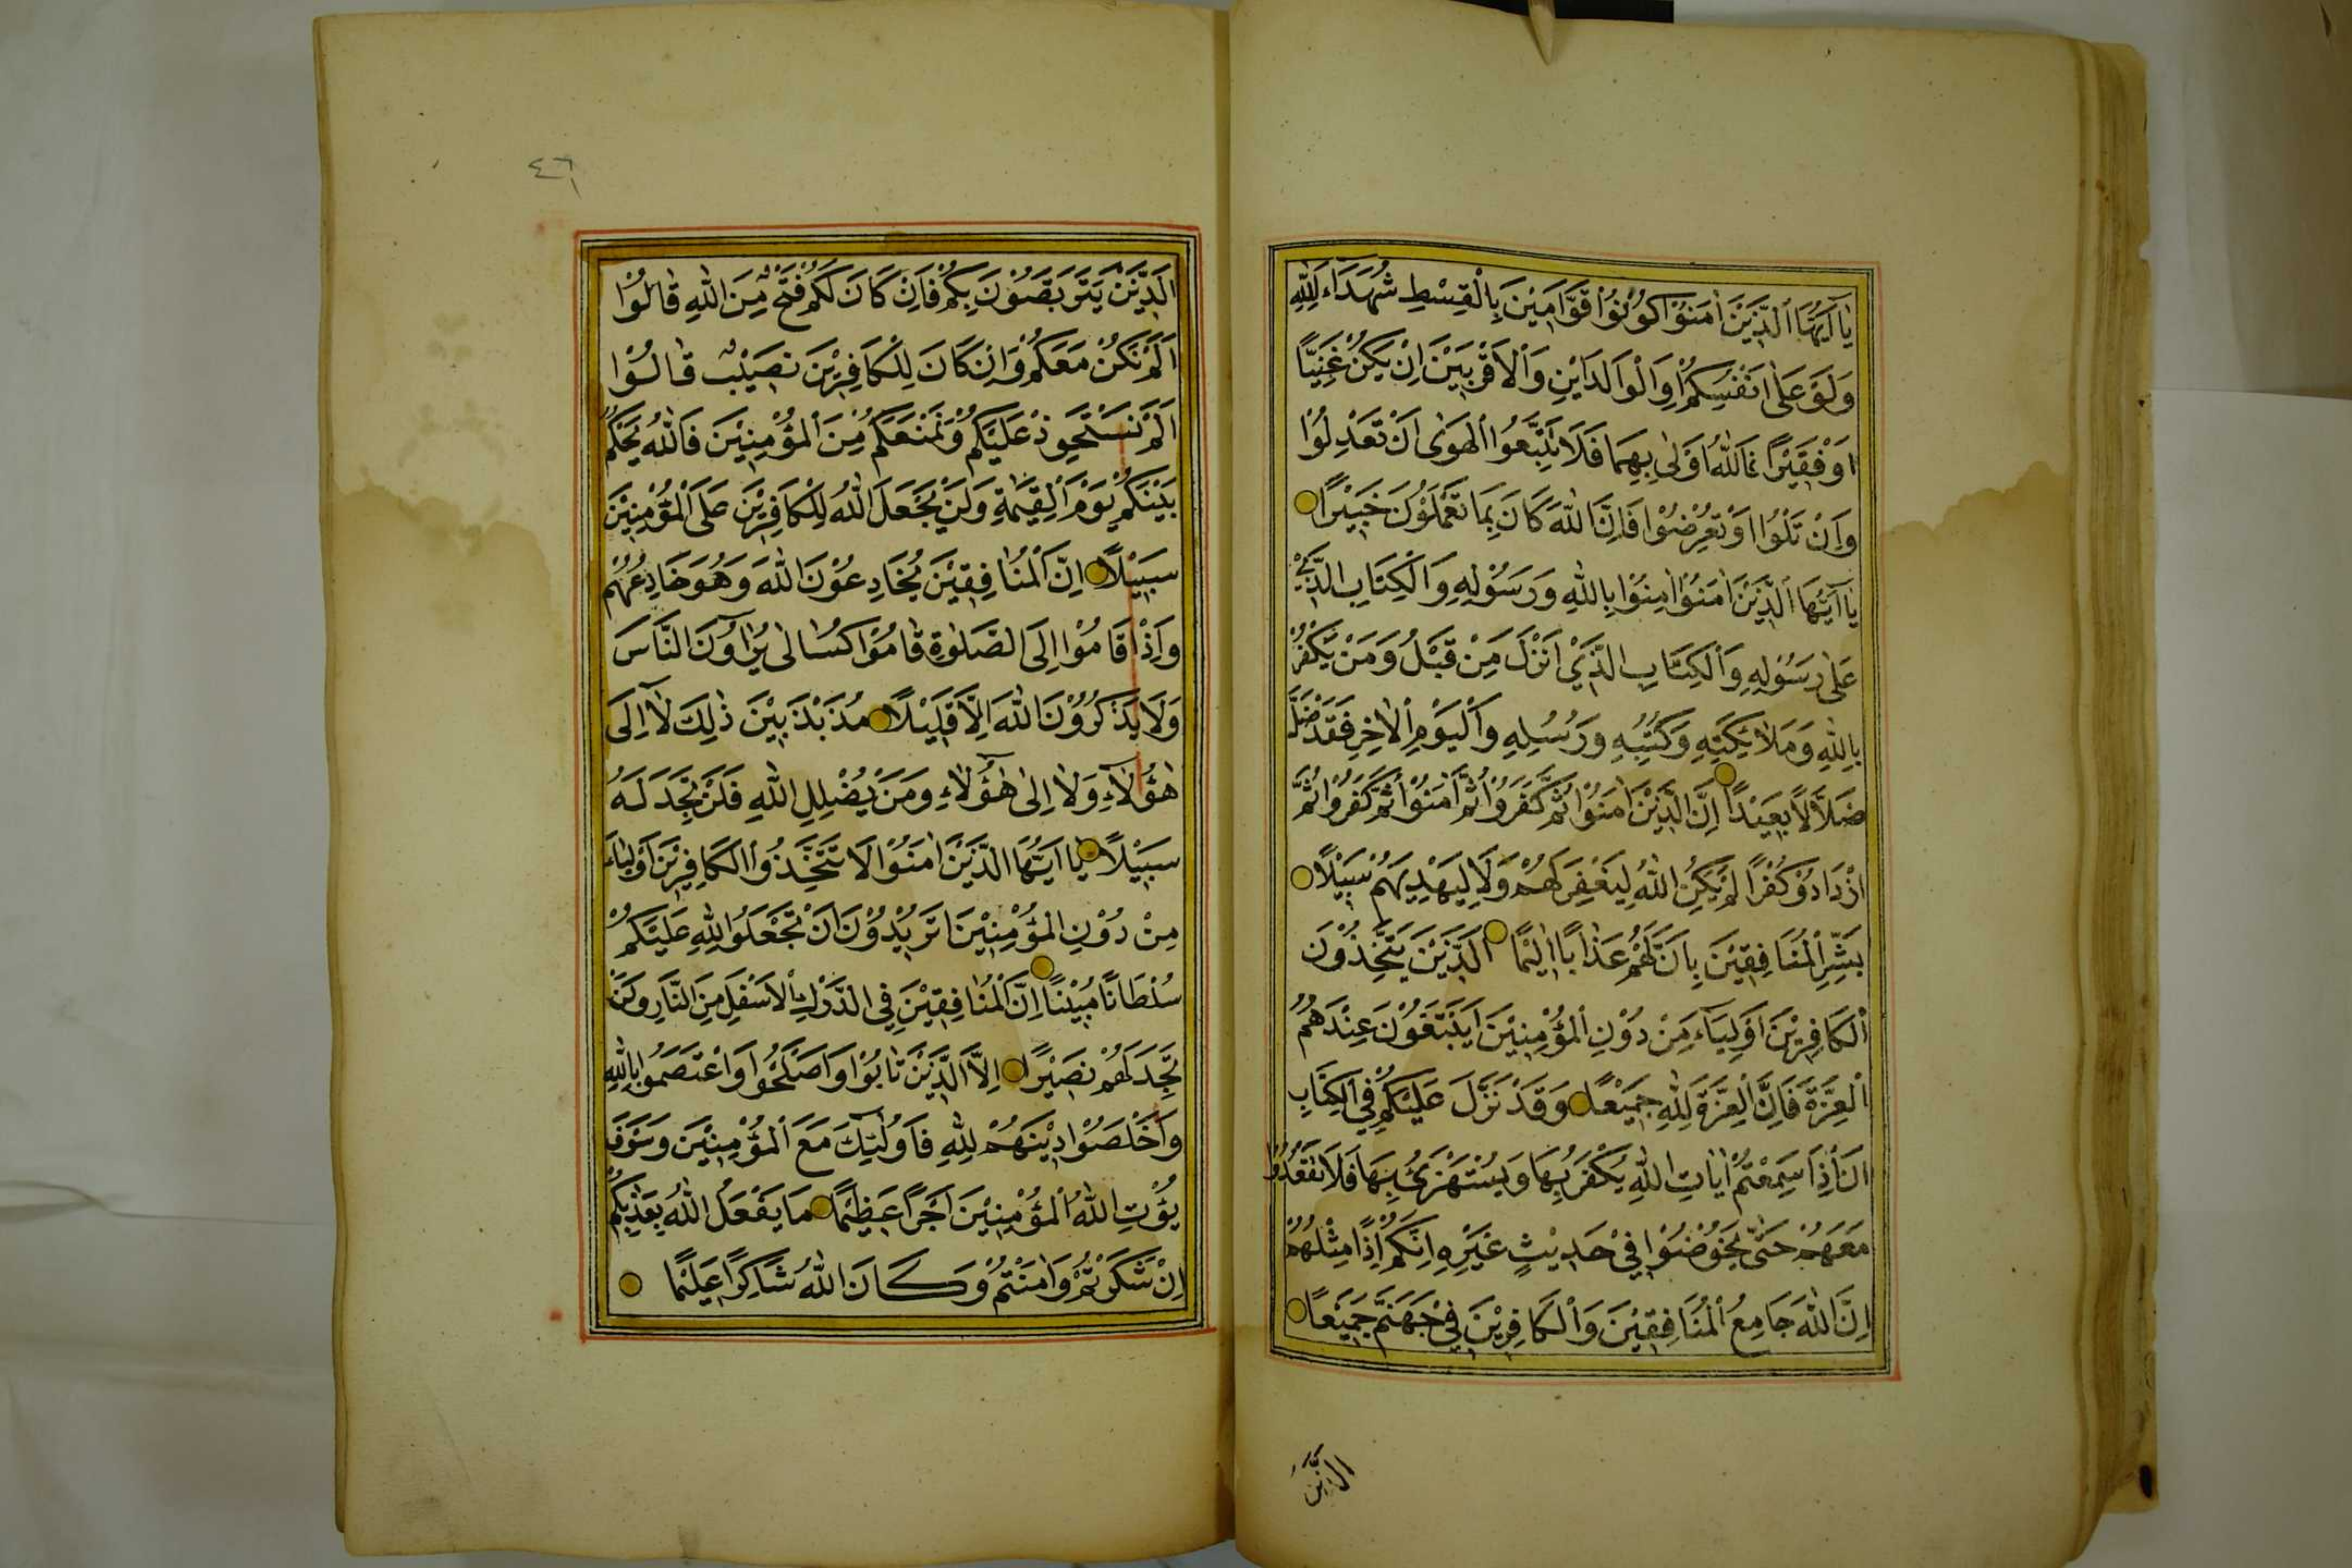 يَا اَيُّهَا الَّذِينَ اٰمَنُوا كُونُوا قَوَّامِينَ بِالْقِسْطِ شُهَدَاءَ لِلّٰهِ
وَلَوْ عَلٰى اَنْفُسِكُمْ اَوِ الْوَالِدَيْنِ وَالْاَقْرَبِينَ اِنْ يَكُنْ غَنِيًّا
اَوْ فَقِيرًا فَاللّٰهُ اَوْلٰى بِهِمَا فَلَا تَتَّبِعُوا الْهَوٰى اَنْ تَعْدِلُوا
وَاِنْ تَلْوُا اَوْ تُعْرِضُوا فَاِنَّ اللّٰهَ كَانَ بِمَا تَعْمَلُونَ خَبِيرًا
يَا اَيُّهَا الَّذِينَ اٰمَنُوا اٰمِنُوا بِاللّٰهِ وَرَسُولِهِ وَالْكِتَابِ الَّذِي
عَلٰى رَسُولِهِ وَالْكِتَابِ الَّذِي اَنْزَلَ مِنْ قَبْلُ وَمَنْ يَكْفُرْ
بِاللّٰهِ وَمَلٰئِكَتِهِ وَكُتُبِهِ وَرُسُلِهِ وَالْيَوْمِ الْاٰخِرِ فَقَدْ ضَلَّ
ضَلَالًا بَعِيدًا اِنَّ الَّذِينَ اٰمَنُوا ثُمَّ كَفَرُوا ثُمَّ اٰمَنُوا ثُمَّ كَفَرُوا ثُمَّ
ازْدَادُوا كُفْرًا لَمْ يَكُنِ اللّٰهُ لِيَغْفِرَ لَهُمْ وَلَا لِيَهْدِيَهُمْ سَبِيلًا
بَشِّرِ الْمُنَافِقِينَ بِاَنَّ لَهُمْ عَذَابًا اَلِيمًا الَّذِينَ يَتَّخِذُونَ
الْكَافِرِينَ اَوْلِيَاءَ مِنْ دُونِ الْمُؤْمِنِينَ اَيَبْتَغُونَ عِنْدَهُمُ
الْعِزَّةَ فَاِنَّ الْعِزَّةَ لِلّٰهِ جَمِيعًا وَقَدْ نَزَّلَ عَلَيْكُمْ فِي الْكِتَابِ
اَنْ اِذَا سَمِعْتُمْ اٰيَاتِ اللّٰهِ يُكْفَرُ بِهَا وَيُسْتَهْزَئُ بِهَا فَلَا تَقْعُدُوا
مَعَهُمْ حَتّٰى يَخُوضُوا فِي حَدِيثٍ غَيْرِهِ اِنَّكُمْ اِذًا مِثْلُهُمْ
اِنَّ اللّٰهَ جَامِعُ الْمُنَافِقِينَ وَالْكَافِرِينَ فِي جَهَنَّمَ جَمِيعًا
الَّذِينَ
٤٦
الَّذِينَ يَتَرَبَّصُونَ بِكُمْ فَاِنْ كَانَ لَكُمْ فَتْحٌ مِنَ اللّٰهِ قَالُوا
اَلَمْ نَكُنْ مَعَكُمْ وَاِنْ كَانَ لِلْكَافِرِينَ نَصِيبٌ قَالُوا
اَلَمْ نَسْتَحْوِذْ عَلَيْكُمْ وَنَمْنَعْكُمْ مِنَ الْمُؤْمِنِينَ فَاللّٰهُ يَحْكُمُ
بَيْنَكُمْ يَوْمَ الْقِيٰمَةِ وَلَنْ يَجْعَلَ اللّٰهُ لِلْكَافِرِينَ عَلَى الْمُؤْمِنِينَ
سَبِيلًا اِنَّ الْمُنَافِقِينَ يُخَادِعُونَ اللّٰهَ وَهُوَ خَادِعُهُمْ
وَاِذَا قَامُوا اِلَى الصَّلٰوةِ قَامُوا كُسَالٰى يُرَاؤُنَ النَّاسَ
وَلَا يَذْكُرُونَ اللّٰهَ اِلَّا قَلِيلًا مُذَبْذَبِينَ بَيْنَ ذٰلِكَ لَا اِلٰى
هٰؤُلَاءِ وَلَا اِلٰى هٰؤُلَاءِ وَمَنْ يُضْلِلِ اللّٰهُ فَلَنْ تَجِدَ لَهُ
سَبِيلًا يَا اَيُّهَا الَّذِينَ اٰمَنُوا لَا تَتَّخِذُوا الْكَافِرِينَ اَوْلِيَاءَ
مِنْ دُونِ الْمُؤْمِنِينَ اَتُرِيدُونَ اَنْ تَجْعَلُوا لِلّٰهِ عَلَيْكُمْ
سُلْطَانًا مُبِينًا اِنَّ الْمُنَافِقِينَ فِي الدَّرْكِ الْاَسْفَلِ مِنَ النَّارِ وَلَنْ
تَجِدَ لَهُمْ نَصِيرًا اِلَّا الَّذِينَ تَابُوا وَاَصْلَحُوا وَاعْتَصَمُوا بِاللّٰهِ
وَاَخْلَصُوا دِينَهُمْ لِلّٰهِ فَاُولٰئِكَ مَعَ الْمُؤْمِنِينَ وَسَوْفَ
يُؤْتِ اللّٰهُ الْمُؤْمِنِينَ اَجْرًا عَظِيمًا مَا يَفْعَلُ اللّٰهُ بِعَذَابِكُمْ
اِنْ شَكَرْتُمْ وَاٰمَنْتُمْ وَكَانَ اللّٰهُ شَاكِرًا عَلِيمًا